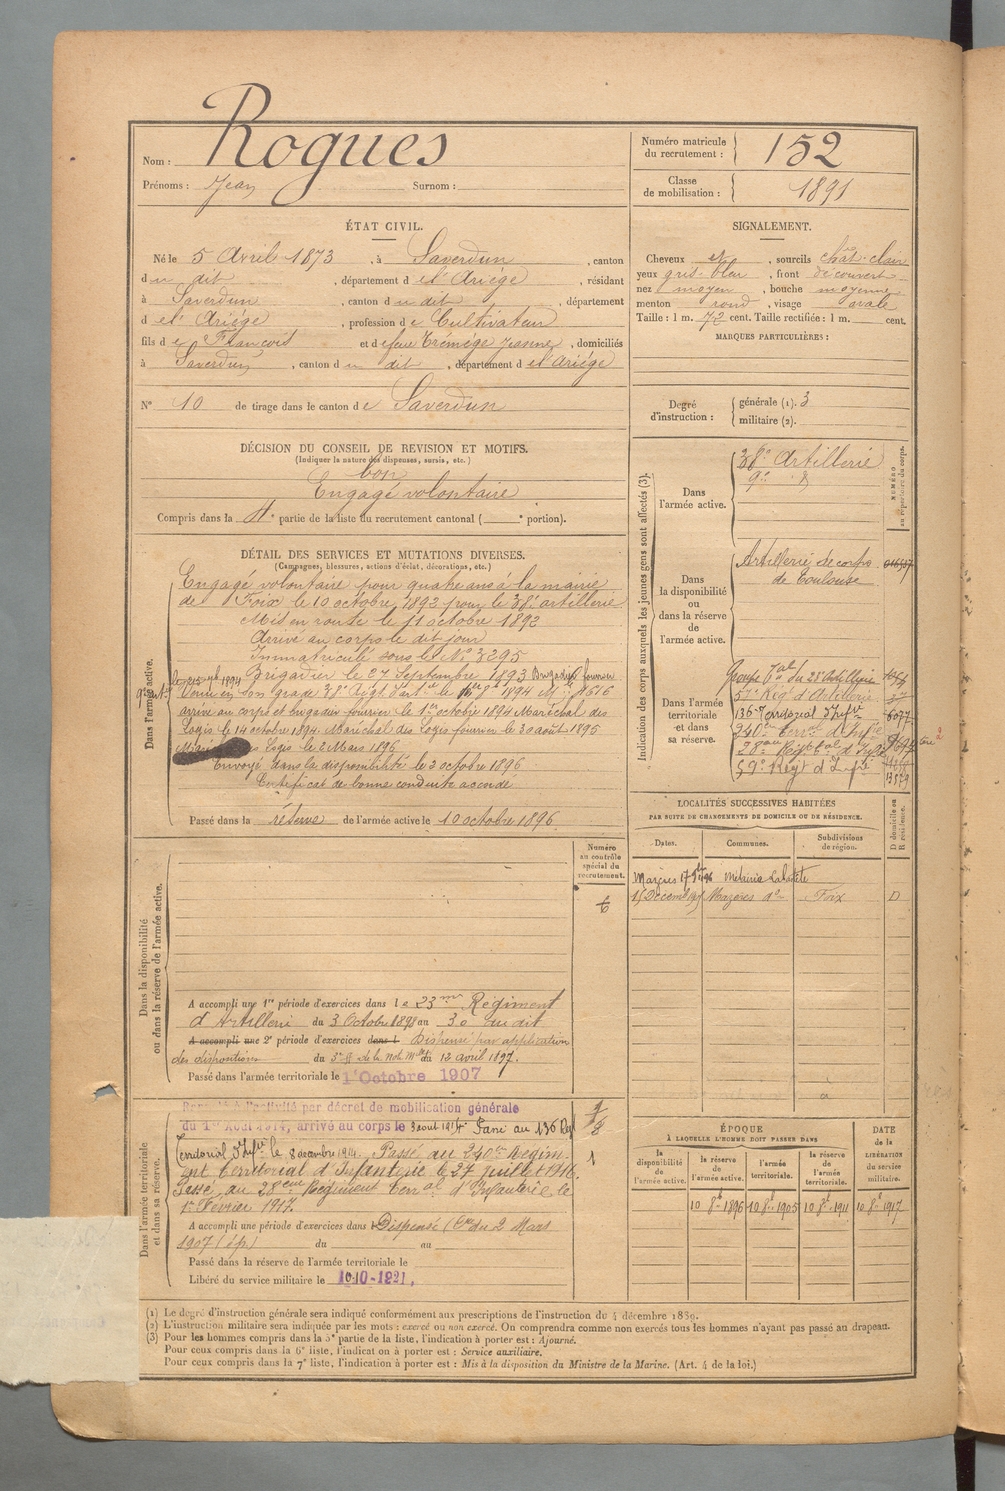 Nom : Rogues
Prénoms : Jean Surnom :
Numéro matricule du recrutement : 152
Classe de mobilisation : 1891
ÉTAT CIVIL.
Né le 5 Avril 1873, à Saverdun, canton
du dit, département de l'Ariége, résidant
à Saverdun, canton du dit, département
de l'Ariége, profession de Cultivateur
fils de François et de feue Trémège Jeanne, domiciliés
à Saverdun, canton du dit, département de l'Ariége
N° 10 de tirage dans le canton de Saverdun
SIGNALEMENT.
Cheveux et, sourcils chât. clair
yeux gris-bleu, front découvert
nez moyen, bouche moyenne
menton rond, visage ovale
Taille : 1 m. 72 cent. Taille rectifiée : 1 m. cent.
MARQUES PARTICULIÈRES :
Degré d'instruction : générale (1). 3
militaire (2).
DÉCISION DU CONSEIL DE REVISION ET MOTIFS.
(Indiquer la nature des dispenses, sursis, etc.)
bon
Engagé volontaire
Compris dans la 4e partie de la liste du recrutement cantonal ( e portion).
DÉTAIL DES SERVICES ET MUTATIONS DIVERSES.
(Campagnes, blessures, actions d'éclat, décorations, etc.)
Dans l'armée active.
Engagé volontaire pour quatre ans à la mairie
de Foix le 10 octobre 1892 pour le 38e artillerie
Mis en route le 11 octobre 1892
Arrivé au corps le dit jour
Immatriculé sous le N° 3295
Brigadier le 27 Septembre 1893 Brigadier fourrier
arrivé au corps et brigadier fourrier le 1er octobre 1894 Maréchal des
Logis le 14 octobre 1894. Maréchal des Logis fourrier le 30 août 1895
Logis le 2 Mars 1896
Envoyé dans la disponibilité le 3 octobre 1896
Certificat de bonne conduite accordé
Passé dans la réserve de l'armée active le 10 octobre 1896
Indication des corps auxquels les jeunes gens sont affectés (3).
NUMÉRO au répertoire du corps.
Dans l'armée active.
38e Artillerie
9e
Dans la disponibilité ou dans la réserve de l'armée active.
Artillerie de corps
de Toulouse
Dans l'armée territoriale et dans sa réserve.
57e Régt d'Artillerie
136e Territorial d'Infie
240e Terr. d'Infie
59e Régt d'Infie
LOCALITÉS SUCCESSIVES HABITÉES
PAR SUITE DE CHANGEMENTS DE DOMICILE OU DE RÉSIDENCE.
Dates. Communes. Subdivisions de région. D domicile ou R résidence.
Mazères
15 Décemb Mazères Foix D
Dans la disponibilité ou dans la réserve de l'armée active.
Numéro au contrôle spécial du recrutement.
A accompli une 1re période d'exercices dans le 23me Régiment
d'Artillerie du 3 Octobre 1898 au 30 du dit
A accompli une 2e période d'exercices dans l Dispensé par application
des dispositions du 12 avril 1897.
Passé dans l'armée territoriale le 1er Octobre 1907
Dans l'armée territoriale et dans sa réserve.
Rappelé à l'activité par décret de mobilisation générale
du 1er Août 1914, arrivé au corps le 3 août 1914. Passé au 136 Régt
Territorial d'Infie le 8 décembre 1914. Passé au 240e Régim-
ent Territorial d'Infanterie le 27 juillet 1916.
Passé au 28eme Régiment Terrial d'Infanterie le
1er Février 1917.
A accompli une période d'exercices dans Dispensé (Cre du 2 Mars
1907 (ép.) du au
Passé dans la réserve de l'armée territoriale le
Libéré du service militaire le
ÉPOQUE
À LAQUELLE L'HOMME DOIT PASSER DANS
DATE de la LIBÉRATION du service militaire.
la disponibilité de l'armée active. la réserve de l'armée active. l'armée territoriale. la réserve de l'armée territoriale.
10 8bre 1896 10 8bre 1905 10 8bre 1911 10 8bre 1917
(1) Le degré d'instruction générale sera indiqué conformément aux prescriptions de l'instruction du 4 décembre 1889.
(2) L'instruction militaire sera indiquée par les mots : exercé ou non exercé. On comprendra comme non exercés tous les hommes n'ayant pas passé au drapeau.
(3) Pour les hommes compris dans la 5e partie de la liste, l'indication à porter est : Ajourné.
Pour ceux compris dans la 6e liste, l'indication à porter est : Service auxiliaire.
Pour ceux compris dans la 7e liste, l'indication à porter est : Mis à la disposition du Ministre de la Marine. (Art. 4 de la loi.)